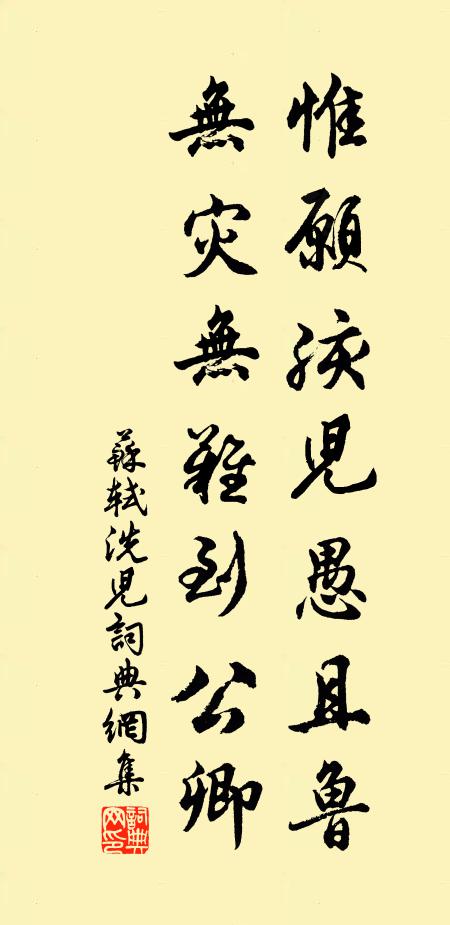 惟願孩兒愚且魯
無灾無難到公卿
蘇軾洗兒詞典網集
詞典網印